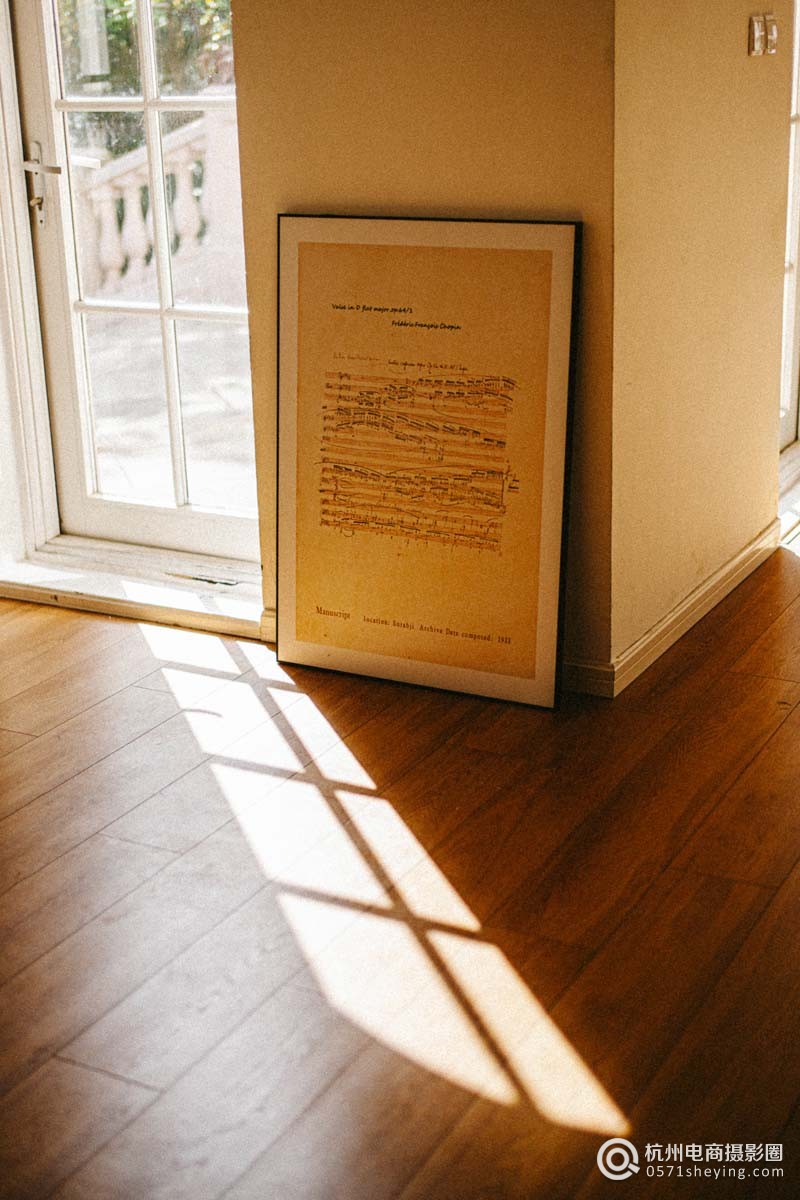 Valse in D flat major op64/1
Frédéric François Chopin
Manuscript
Location: Sorabji. Archive Date composed: 1933
杭州电商摄影圈
0571sheying.com